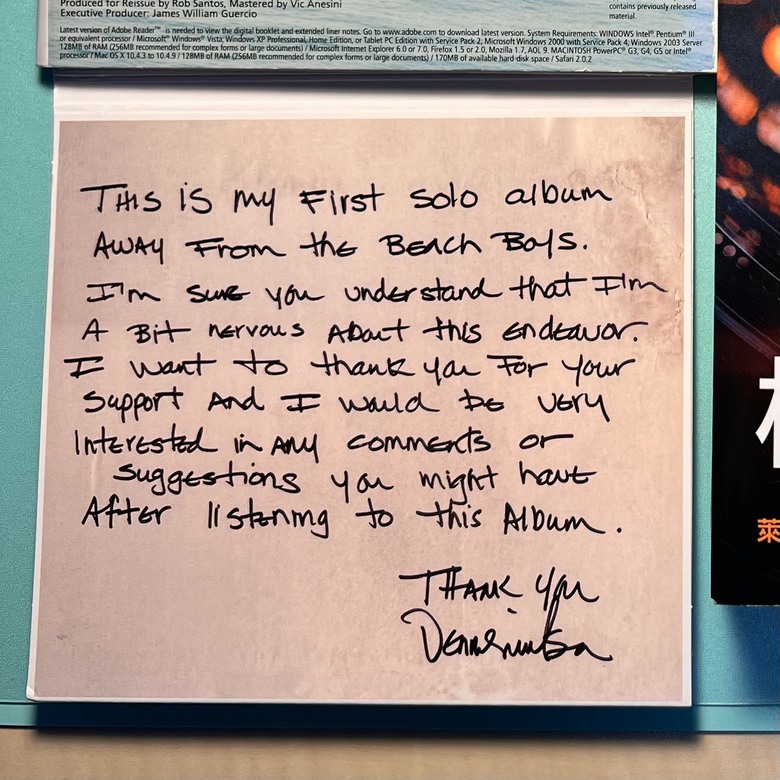 Produced for Reissue by Rob Santos, Mastered by Vic Anesini
Executive Producer: James William Guercio
contains previously released
material.
Latest version of Adobe Reader™ is needed to view the digital booklet and extended liner notes. Go to www.adobe.com to download latest version. System Requirements: WINDOWS Intel® Pentium® III
or equivalent processor / Microsoft® Windows® Vista; Windows XP Professional, Home Edition, or Tablet PC Edition with Service Pack 2; Microsoft Windows 2000 with Service Pack 4; Windows 2003 Server
128MB of RAM (256MB recommended for complex forms or large documents) / Microsoft Internet Explorer 6.0 or 7.0, Firefox 1.5 or 2.0, Mozilla 1.7, AOL 9. MACINTOSH PowerPC® G3, G4, G5 or Intel®
processor / Mac OS X 10.4.3 to 10.4.9 / 128MB of RAM (256MB recommended for complex forms or large documents) / 170MB of available hard-disk space / Safari 2.0.2
THIS is my First solo album
AWAY From the BEACH BOYS.
I'm sure you understand that I'm
A Bit nervous About this endeavor.
I want to thank you For your
support And I would be very
Interested in ANY comments or
suggestions you might have
After listening to this Album.
THANK you
Dennis Wilson
萊